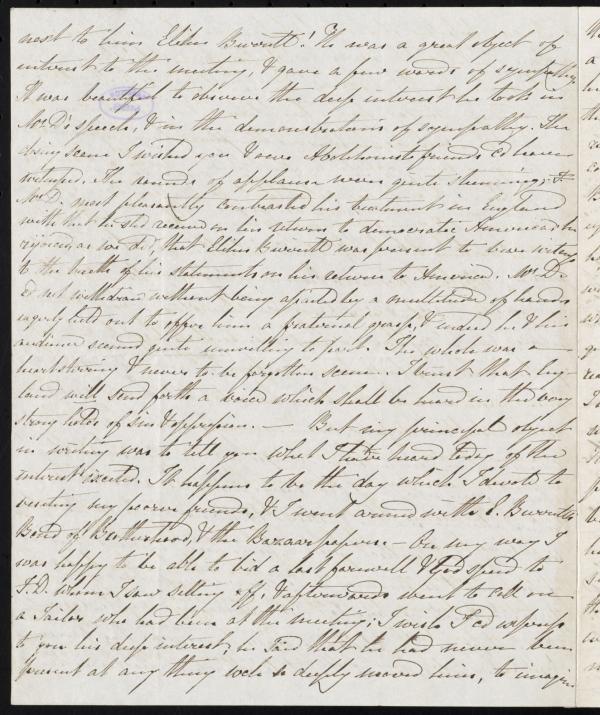 next to him Elihu Burritt! He was a great object of
interest to the meeting, & gave a few words of sympathy
It was beautiful to observe the deep interest he took in
Mr D's speech, & in the demonstrations of sympathy. The
closing scene I wished you & our Abolitionist friends cd have
witnessed. The sounds of applause were quite stunning; &
Mr D. most pleasantly contrasted his treatment in England
with that he shd receive on his return to democratic America! We
rejoiced, as we did, that Elihu Burritt was present to bear witness
to the truth of his statements on his return to America. Mr D.
cd not withdraw without being assailed by a multitude of hands
eagerly held out to offer him a fraternal grasp, & indeed he & his
audience seemed quite unwilling to part. The whole was a
heart stirring & never to be forgotten scene. I trust that Eng-
land will send forth a voice which shall be heard in the very
strong holds of sin & oppression. — But my principal object
in writing was to tell you what I have heard today of the
interest excited. It happens to be the day which I devote to
visiting my poorer friends, & I went armed with E. Burritt's
Bond of Brotherhood, & the Bazaar papers. — On my way I
was happy to be able to bid a last farewell & God speed to
F. D. whom I saw setting off, & afterwards went to call on
a Tailor who had been at the meeting; I wish I cd express
to you his deep interest; he said that he had never been
present at any thing wch so deeply moved him, to imagine